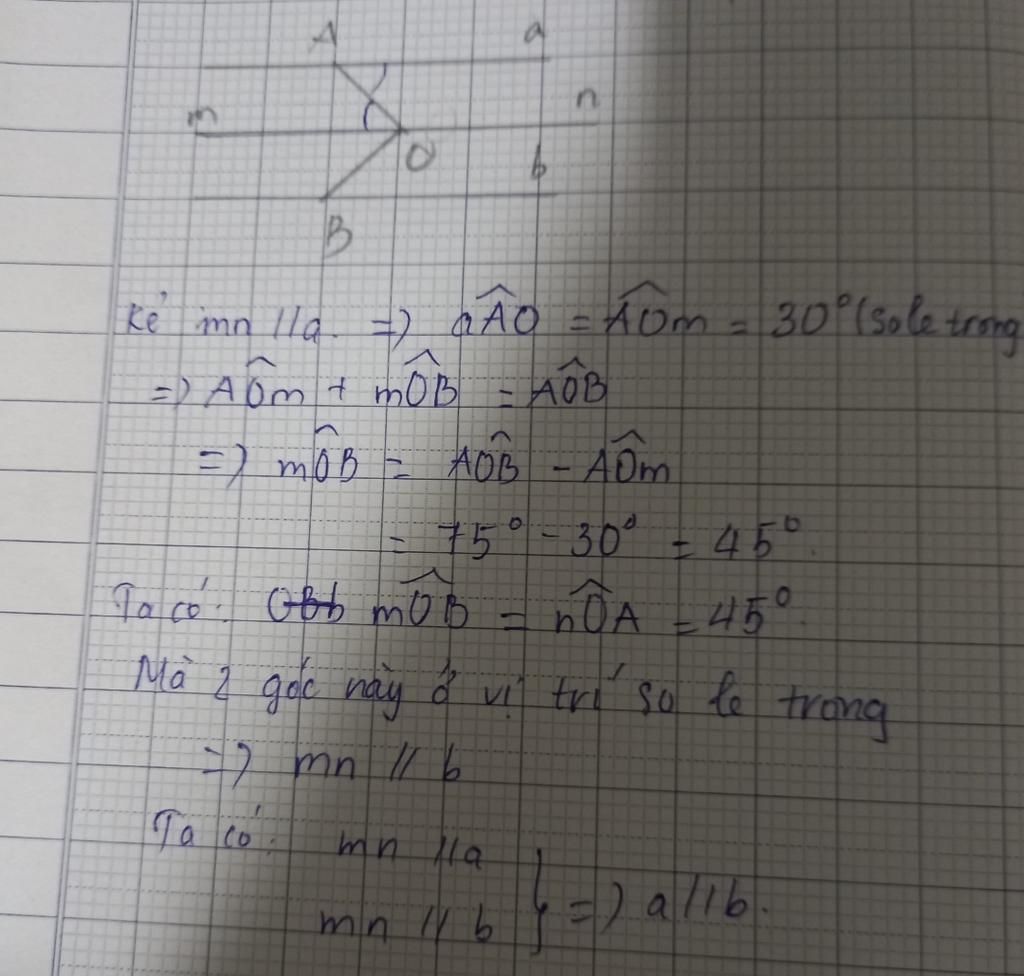 A a
m n
O
b
B
Kẻ mn // a. => aÂO = AÔm = 30° (so le trong
=> AÔm + mÔB = AÔB
=> mÔB = AÔB - AÔm
= 75° - 30° = 45°.
Ta có: OBb mÔB = nÔA = 45°.
Mà 2 góc này ở vị trí so le trong
=> mn // b
Ta có: mn // a
mn // b } => a // b.